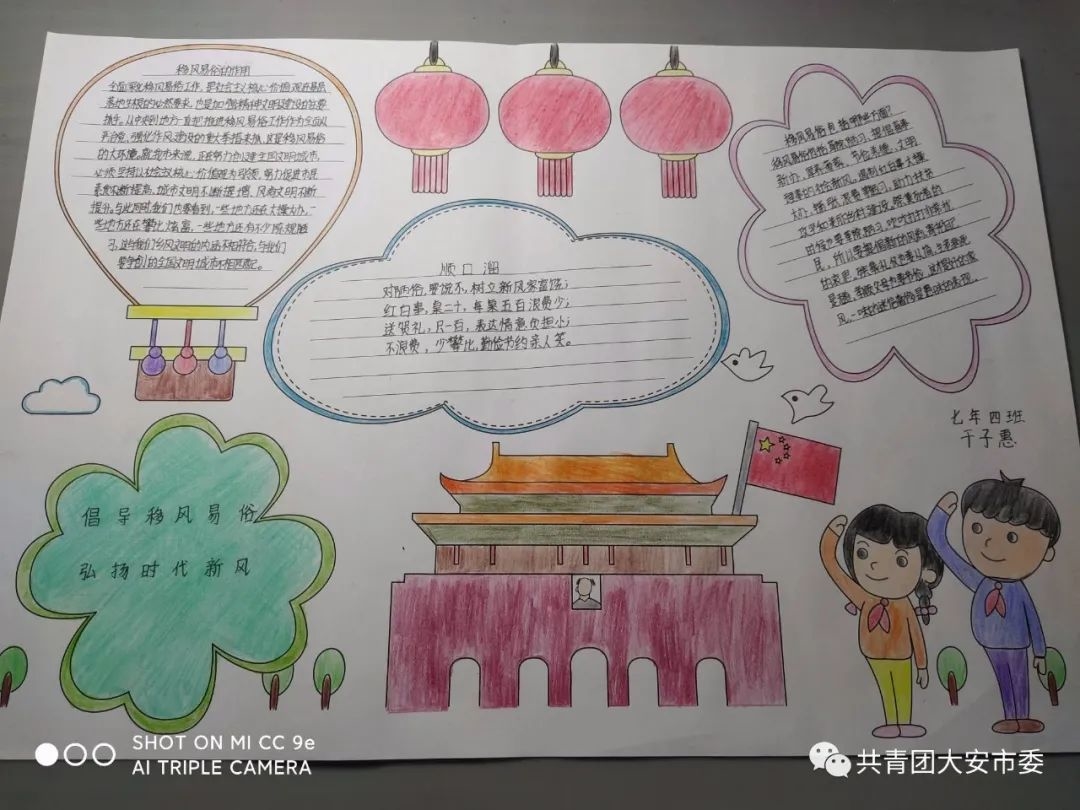 移风易俗的作用
全面深化移风易俗工作，是社会主义核心价值观在基层
落地生根的必然要求，也是加强精神文明建设的重要
抓手。从中央到地方一直把推进移风易俗工作作为全面从
严治党，强化作风建设的重大举措来抓，这是移风易俗
的大环境。就我市来说，正在努力创建全国文明城市，
必须坚持以社会主义核心价值观为引领，努力促进市民
素质不断提高，城市文明不断提增，风尚文明不断
提升。与此同时我们也要看到，“一些地方还在大操大办，一
些地方还在攀比炫富，一些地方还有不少陈规陋
习，这与我们乡风文明的内涵不相符合，与我们
要争创的全国文明城市不相匹配。
顺口溜
对陋俗，要说不，树立新风家富饶；
红白事，桌二十，每桌五百浪费少；
送贺礼，只一百，表达情意负担小；
不浪费，少攀比，勤俭节约亲人笑。
移风易俗包括哪些方面？
移风易俗包括革除陋习，提倡喜事
新办，厚养薄葬，节俭养德，文明
理事的社会新风，遏制红白事大操
大办
倡导移风易俗
弘扬时代新风
七年四班
干子惠
SHOT ON MI CC 9e
AI TRIPLE CAMERA
共青团大安市委